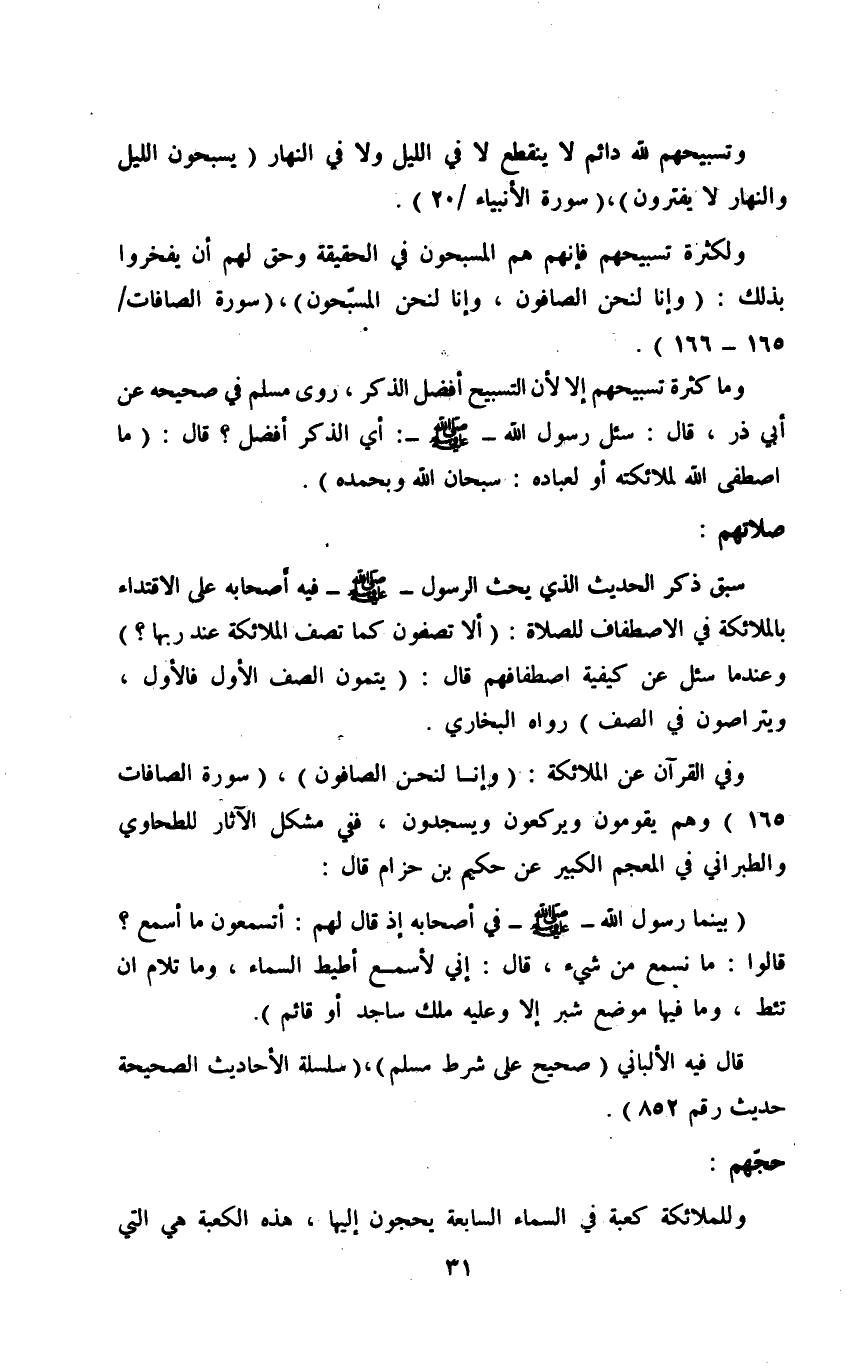 وتسبيحهم لله دائم لا ينقطع لا في الليل ولا في النهار ( يسبحون الليل
والنهار لا يفترون )،( سورة الأنبياء /٢٠ ) .
ولكثرة تسبيحهم فإنهم هم المسبحون في الحقيقة وحق لهم أن يفخروا
بذلك : ( وإنا لنحن الصافون ، وإنا لنحن المسبّحون )،( سورة الصافات/
١٦٥ – ١٦٦ ) .
وما كثرة تسبيحهم إلا لأن التسبيح أفضل الذكر ، روى مسلم في صحيحه عن
أبي ذر ، قال : سئل رسول الله – ﷺ –: أي الذكر أفضل ؟ قال : ( ما
اصطفى الله لملائكته أو لعباده : سبحان الله وبحمده ) .
صلاتهم :
سبق ذكر الحديث الذي يحث الرسول – ﷺ – فيه أصحابه على الاقتداء
بالملائكة في الاصطفاف للصلاة : ( ألا تصفون كما تصف الملائكة عند ربها ؟ )
وعندما سئل عن كيفية اصطفافهم قال : ( يتمون الصف الأول فالأول ،
ويتراصون في الصف ) رواه البخاري .
وفي القرآن عن الملائكة : ( وإنــا لنحـن الصافون ) ، ( سورة الصافات
١٦٥ ) وهم يقومون ويركعون ويسجدون ، ففي مشكل الآثار للطحاوي
والطبراني في المعجم الكبير عن حكيم بن حزام قال :
( بينما رسول الله – ﷺ – في أصحابه إذ قال لهم : أتسمعون ما أسمع ؟
قالوا : ما نسمع من شيء ، قال : إني لأسمـع أطيط السماء ، وما تلام ان
تئط ، وما فيها موضع شبر إلا وعليه ملك ساجد أو قائم ).
قال فيه الألباني ( صحيح على شرط مسلم )،( سلسلة الأحاديث الصحيحة
حديث رقم ٨٥٢ ) .
حجّهم :
وللملائكة كعبة في السماء السابعة يحجون إليها ، هذه الكعبة هي التي
٣١